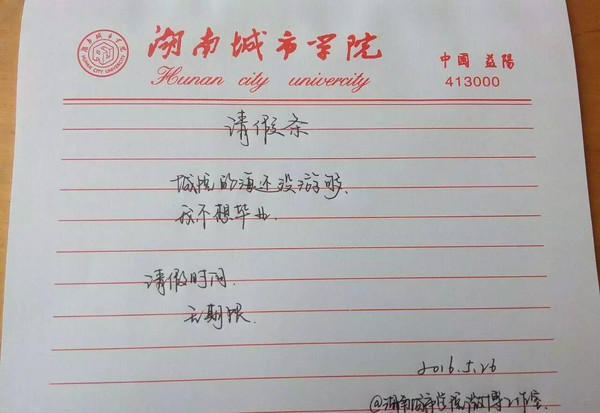 湖南城市学院
Hunan city univercity
中國 益陽
413000
HUNAN CITY UNIVERSITY
请假条
城院的海还没游够,
我不想毕业.
请假时间.
无期限.
2016.5.26
@湖南城市学院微博工作室.